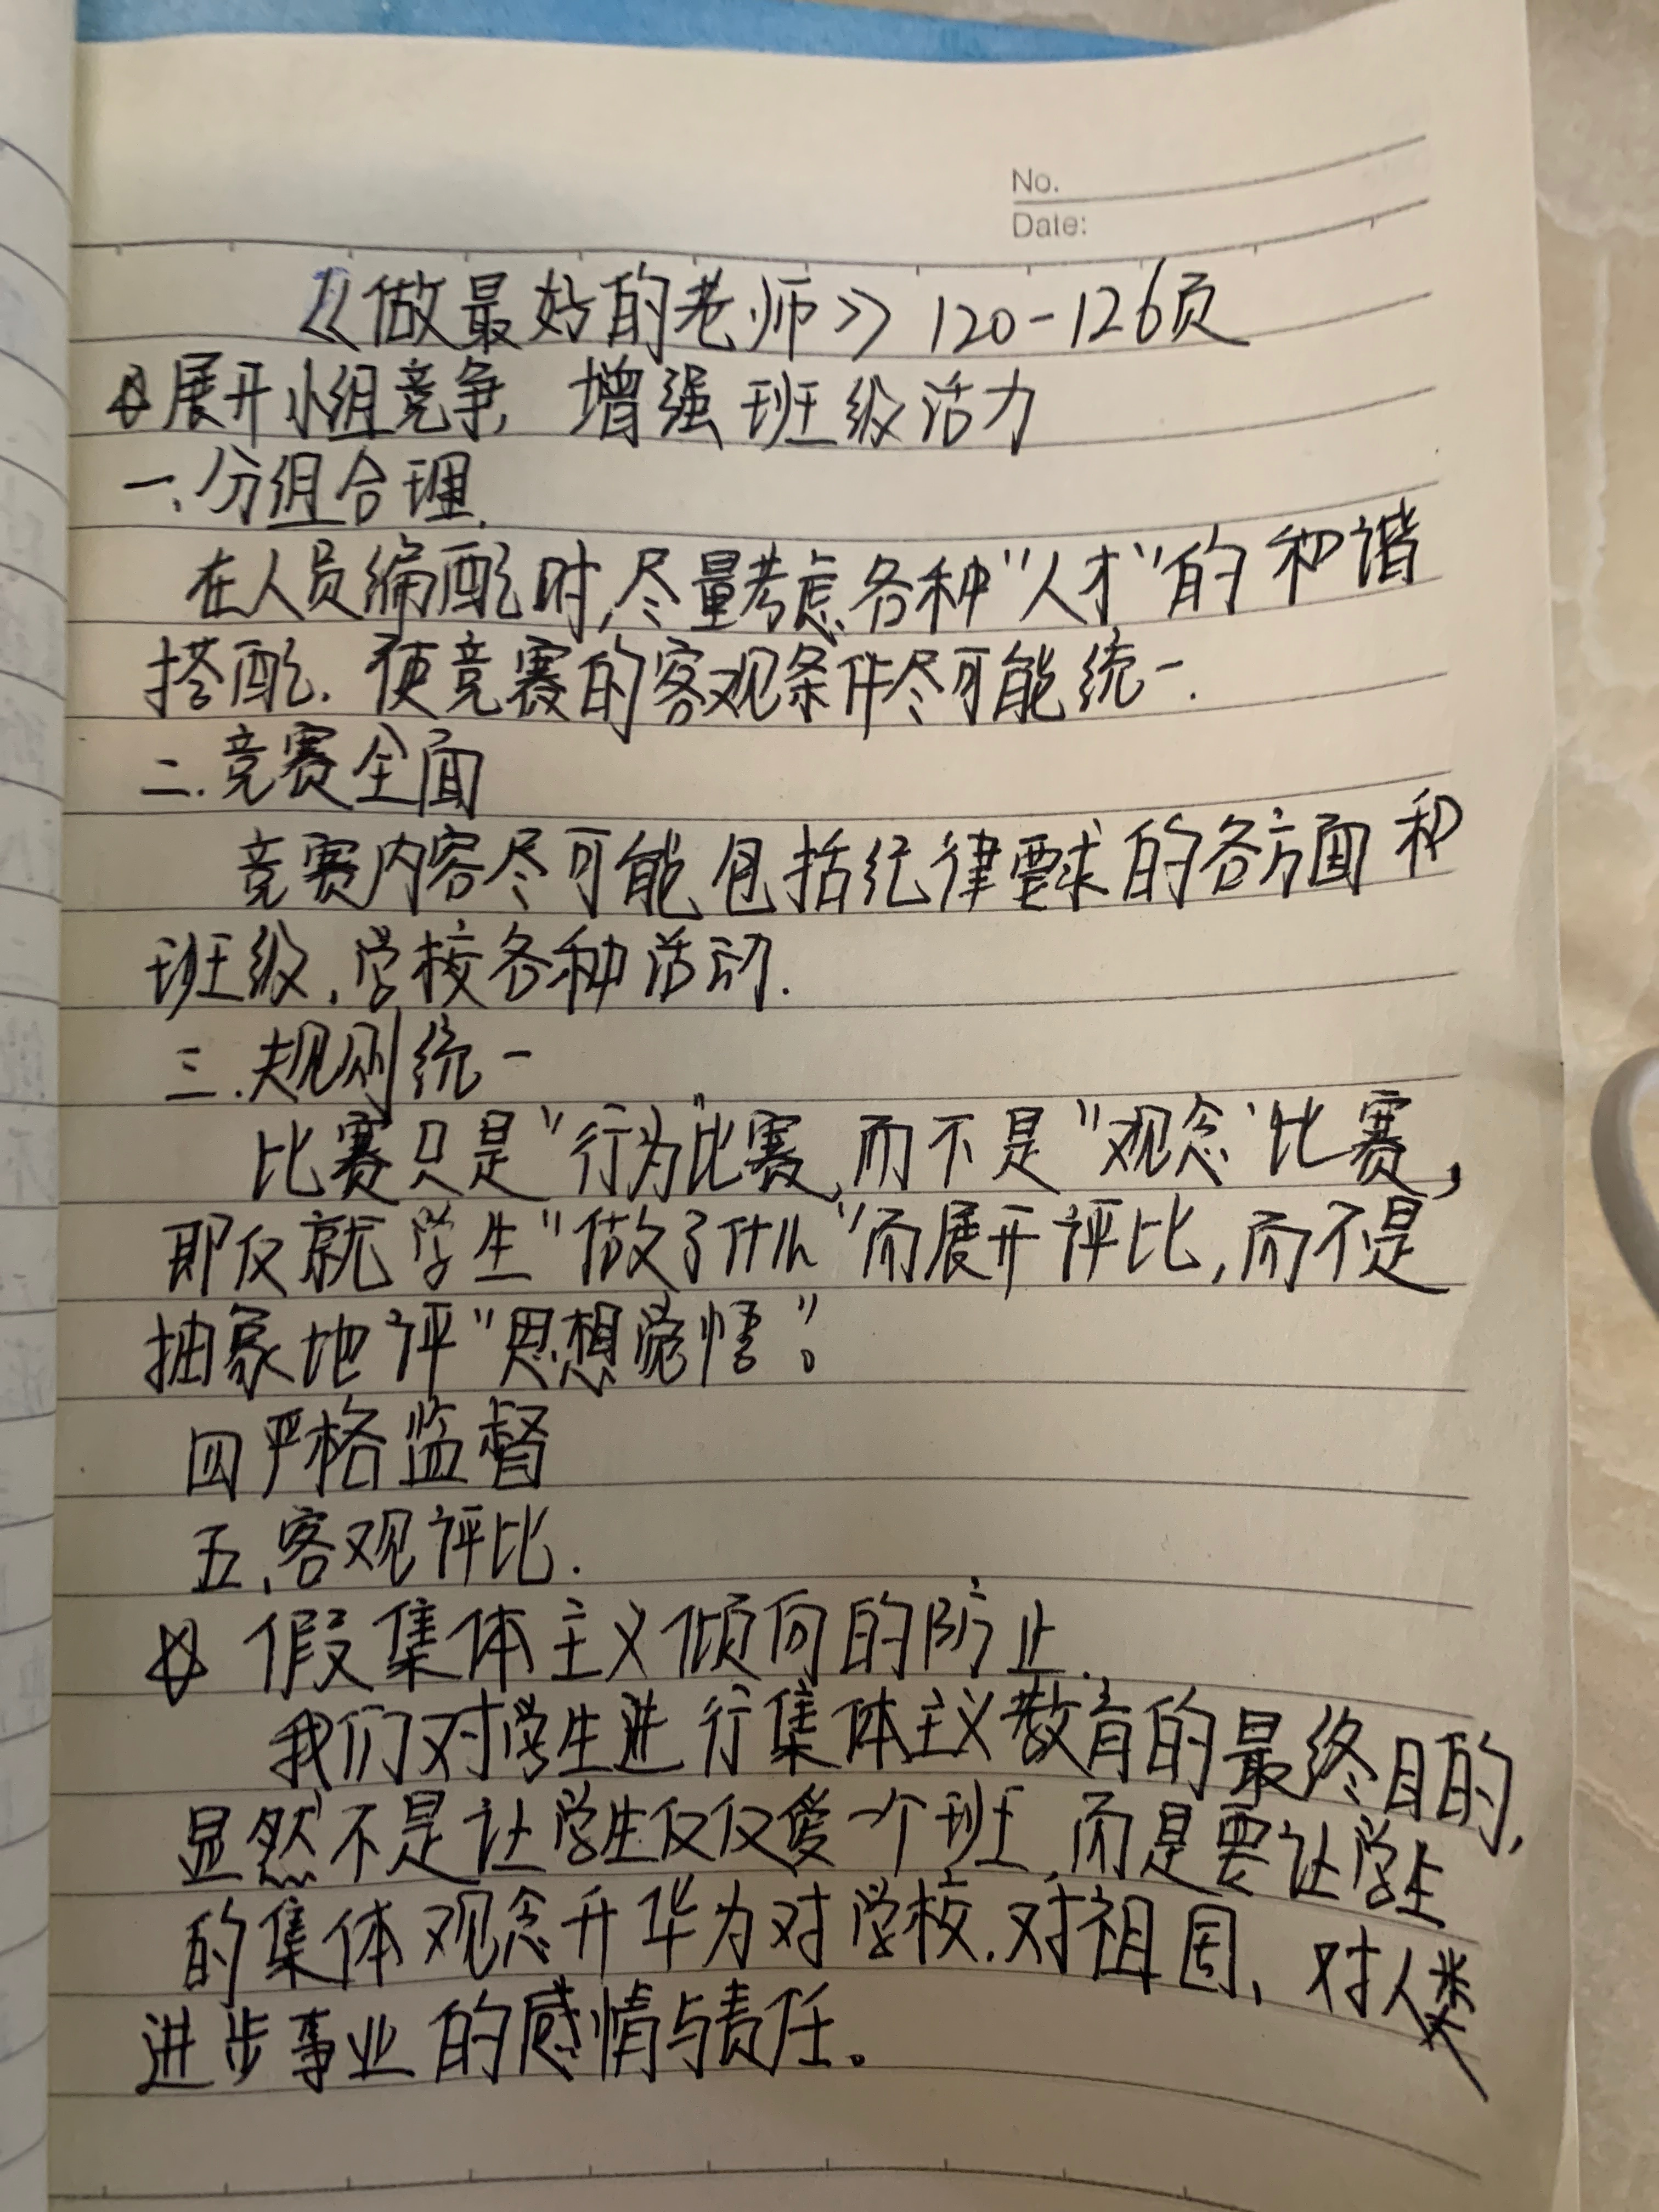 No.
Date:
《做最好的老师》120-126页
☆展开小组竞争，增强班级活力
一、分组合理.
在人员编配时,尽量考虑各种"人才"的和谐
搭配.使竞赛的客观条件尽可能统一.
二.竞赛全面
竞赛内容尽可能包括纪律要求的各方面和
班级、学校各种活动.
三.规则统一
比赛只是"行为"比赛,而不是"观念"比赛,
即仅就学生"做了什么"而展开评比,而不是
抽象地评"思想觉悟"。
四严格监督
五、客观评比.
☆ 假集体主义倾向的防止.
我们对学生进行集体主义教育的最终目的,
显然不是让学生仅仅爱一个班,而是要让学生
的集体观念升华为对学校.对祖国、对人类
进步事业的感情与责任。